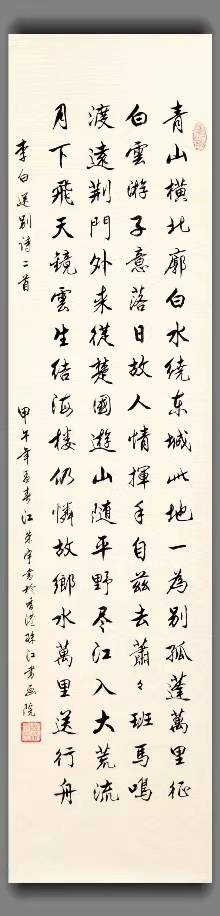 青山橫北廓白水绕东城此地一為别孤蓬萬里征
白雲游子意落日故人情揮手自兹去蕭々班馬鳴
渡遠荆門外来從楚國遊山随平野尽江入大荒流
月下飛天鏡雲生结海樓仍憐故鄉水萬里送行舟
李白送别诗二首
甲午年孟春江書於香港珠江書画院